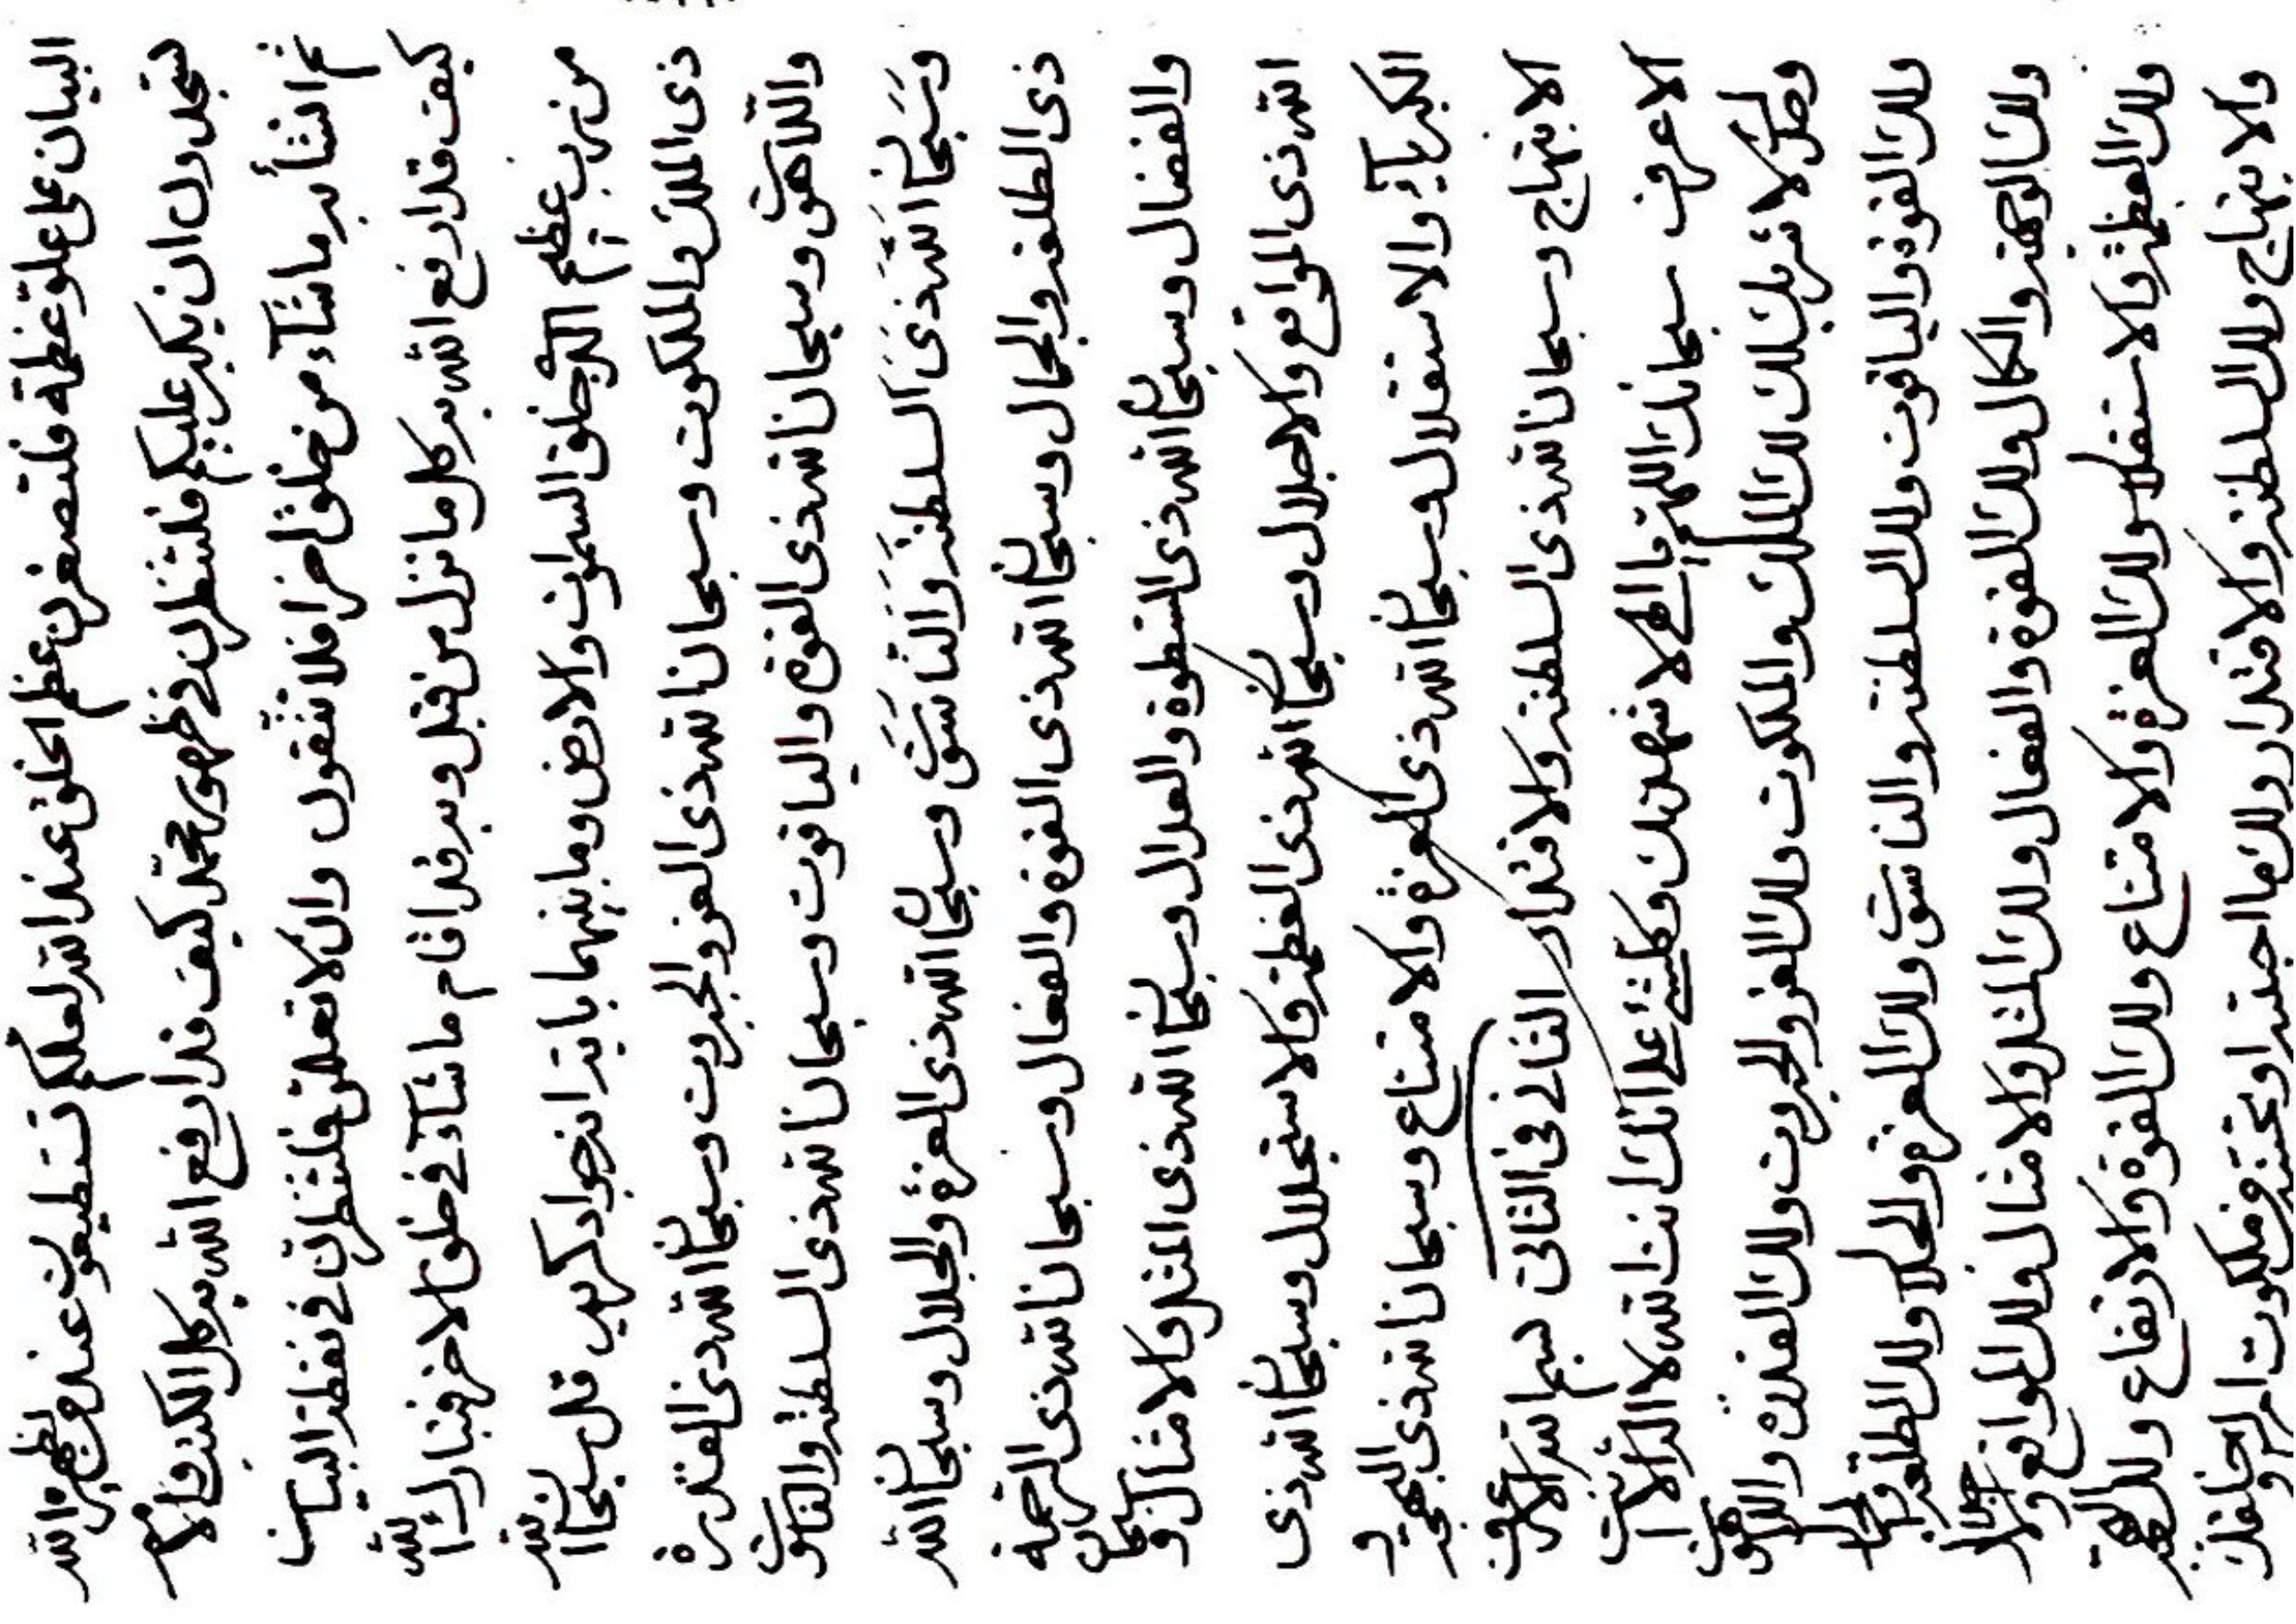 البيان على علو عظمة فلتصغرن عظم الخلق عند الله لعلكم تستطيعون عند من يظهره الله
تسجدون ان يكبر عليكم فلتنظرن في ظهور محمد كيف قد ارفع الله به كل الكتب والامم
ثم انشأ به ما شآء من خلق اخر افلا تتقون وان لا تعلق فلتنظرن في نقطة البيان
كيف قد ارفع الله به كل ما نزل من قبل وبه قد اقام ما شآء في خلق الاخر فتبارك الله
من رب عظيم الذي خلق السموات والارض وما بينهما انه جواد كريم قل سبحان الله
ذى الملك والملكوت وسبحان الله ذى العز والجبروت وسبحان الله ذى القدرة
واللاهوت وسبحان الله ذى القوة والياقوت وسبحان الله ذى السلطنة والناسوت
وسبحان الله ذى السلطنة والناسوت وسبحان الله ذى العزة والجلال وسبحان الله
ذى الطلعة والجمال وسبحان الله ذى القوة والفعال وسبحان الله ذى الرحمة
والفضال وسبحان الله ذى السطوة والعدال وسبحان الله ذى المثل والامثال وسبحان
الله ذى المواقع والاجلال وسبحان الله ذى العظمة والاستجلال وسبحان الله ذى
الكبريآء والاستقلال وسبحان الله ذى العزة والامتناع وسبحان الله ذى البهجة و
الابتهاج وسبحان الله ذى السلطنة والاقتدار الثانى فى الثانى بسم الله الاعرف
الاعرف سبحانك اللهم يا الهى لاشهدنك وكلشئ على انك انت الله لا اله الا انت
وحدك لا شريك لك لك الملك والملكوت ولك العز والجبروت ولك القدرة واللاهوت
ولك القوة والياقوت ولك السلطنة والناسوت ولك العزة والجلال ولك الطلعة والجمال
ولك الوجهة والكمال ولك القوة والفعال ولك المثل والامثال ولك المواقع والاجلال
ولك العظمة والاستقلال ولك العزة والامتناع ولك القوة والارتفاع ولك البهجة
والابتهاج ولك السلطنة والاقتدار ولك ما احببته او تحبه من ملكوت امرك وخلقك